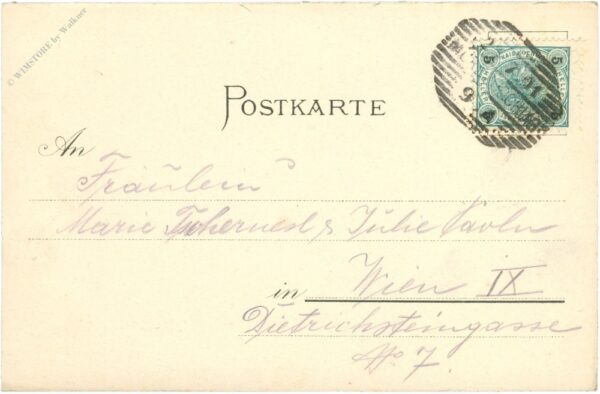 © WIMSTORE by Walkner
5 5
POSTKARTE
An
Fräulein
Marie & Julie
in Wien IX
Dietrichsteingasse
No 7.